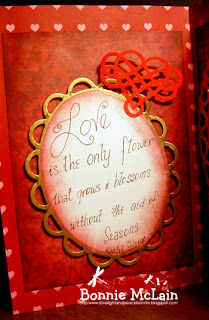 Love
is the only flower
that grows & blossoms
without the aid of
Seasons
Bonnie McLain
http://www.lovelightandpeacebonnie.blogspot.com